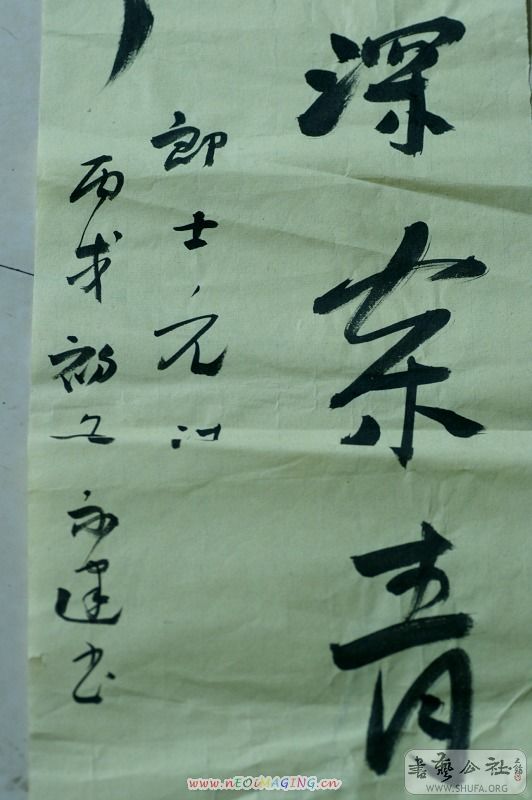 深松青
郎士元诗
丙戌初 永建书
www.nEOiMAGING.cn
書藝公社
WWW.SHUFA.ORG